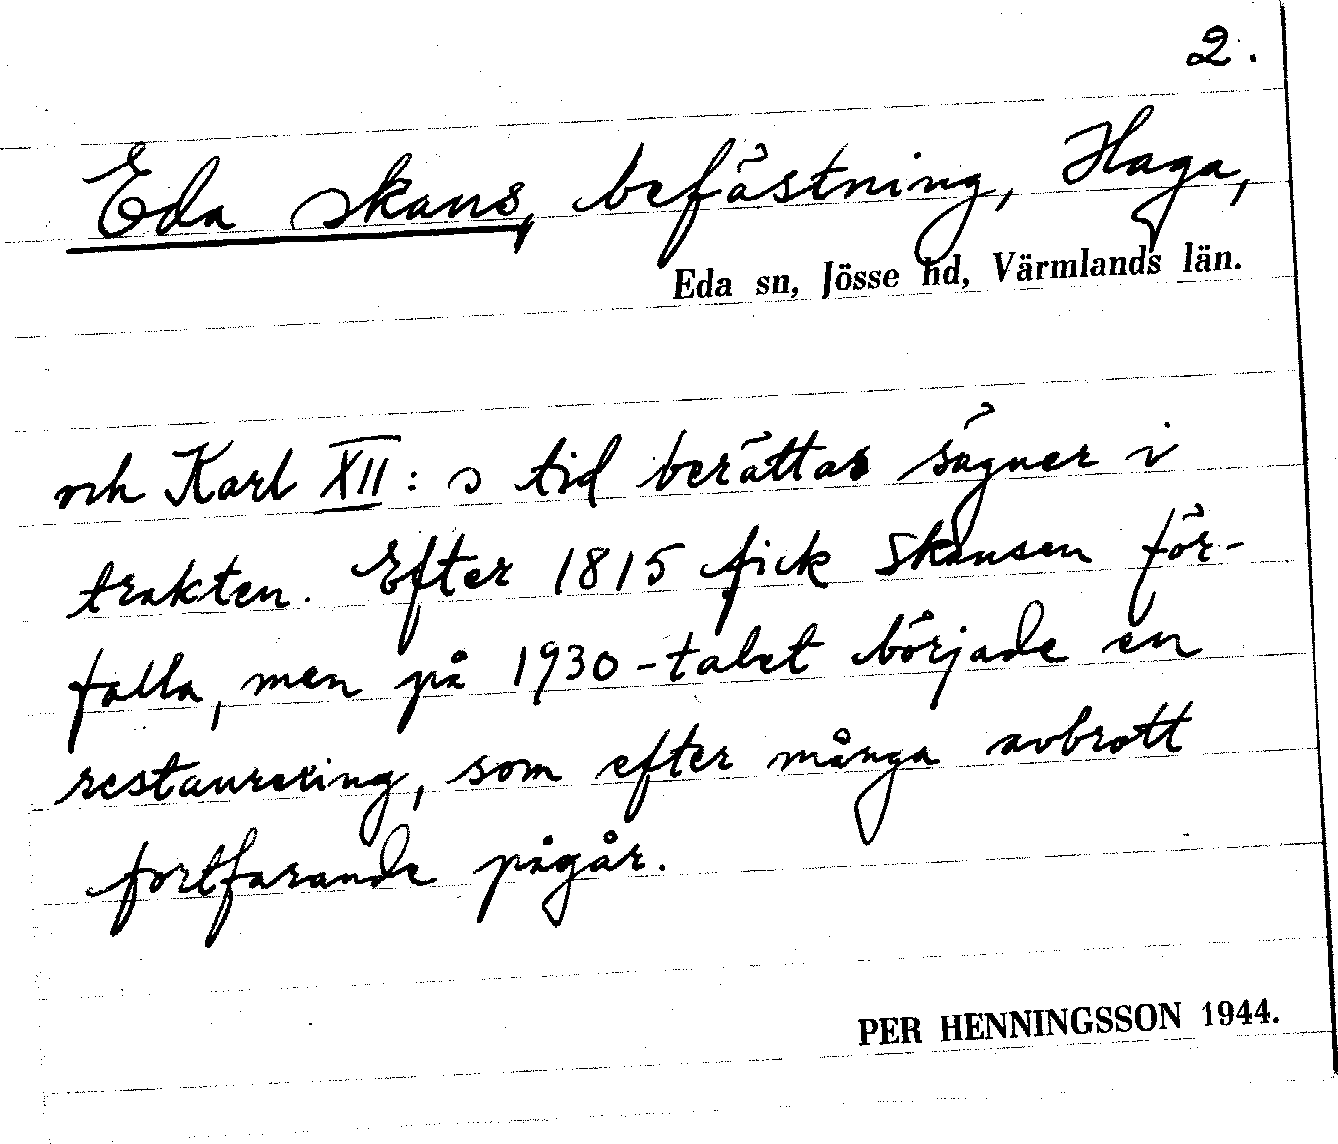 2.
Eda skans, befästning, Haga,
Eda sn, Jösse hd, Värmlands län.
och Karl XII:s tid berättar sägner i
trakten. Efter 1815 fick skansen för-
falla, men på 1930-talet började en
restaurering, som efter många avbrott
fortfarande pågår.
PER HENNINGSSON 1944.